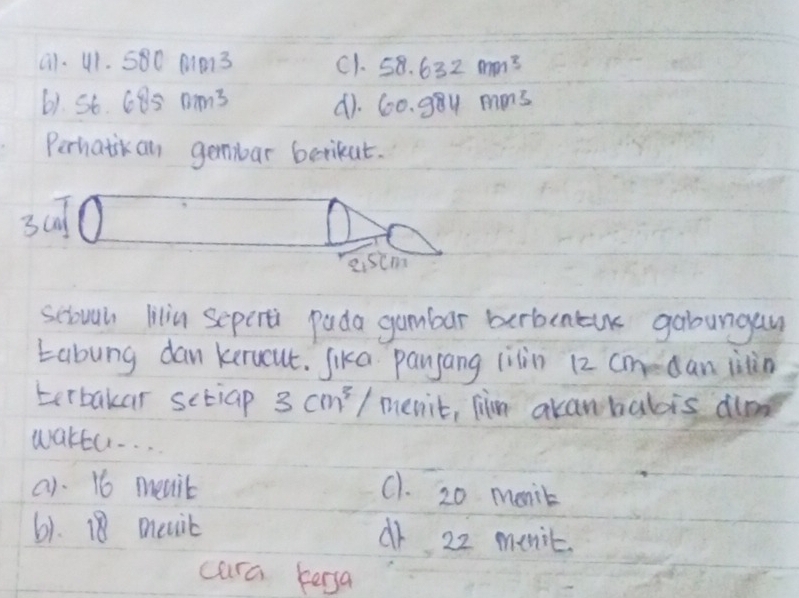 a). 41. 580 mm3 c). 58.632 mm3
b). 56. 685 mm3 d). 60.984 mm3
Perhatikan gambar berikut.
3 cm
2,5cm
Sebuah lilin seperti pada gambar berbentuk gabungan
tabung dan kerucut. Jika panjang lilin 12 cm dan lilin
terbakar setiap 3 cm³/menit, lilin akan habis dlm
waktu....
a). 16 menit c). 20 menit
b). 18 menit d) 22 menit.
cara kerja